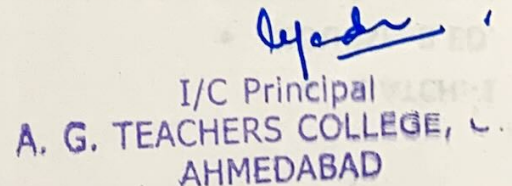 I/C Principal
A. G. TEACHERS COLLEGE,
AHMEDABAD